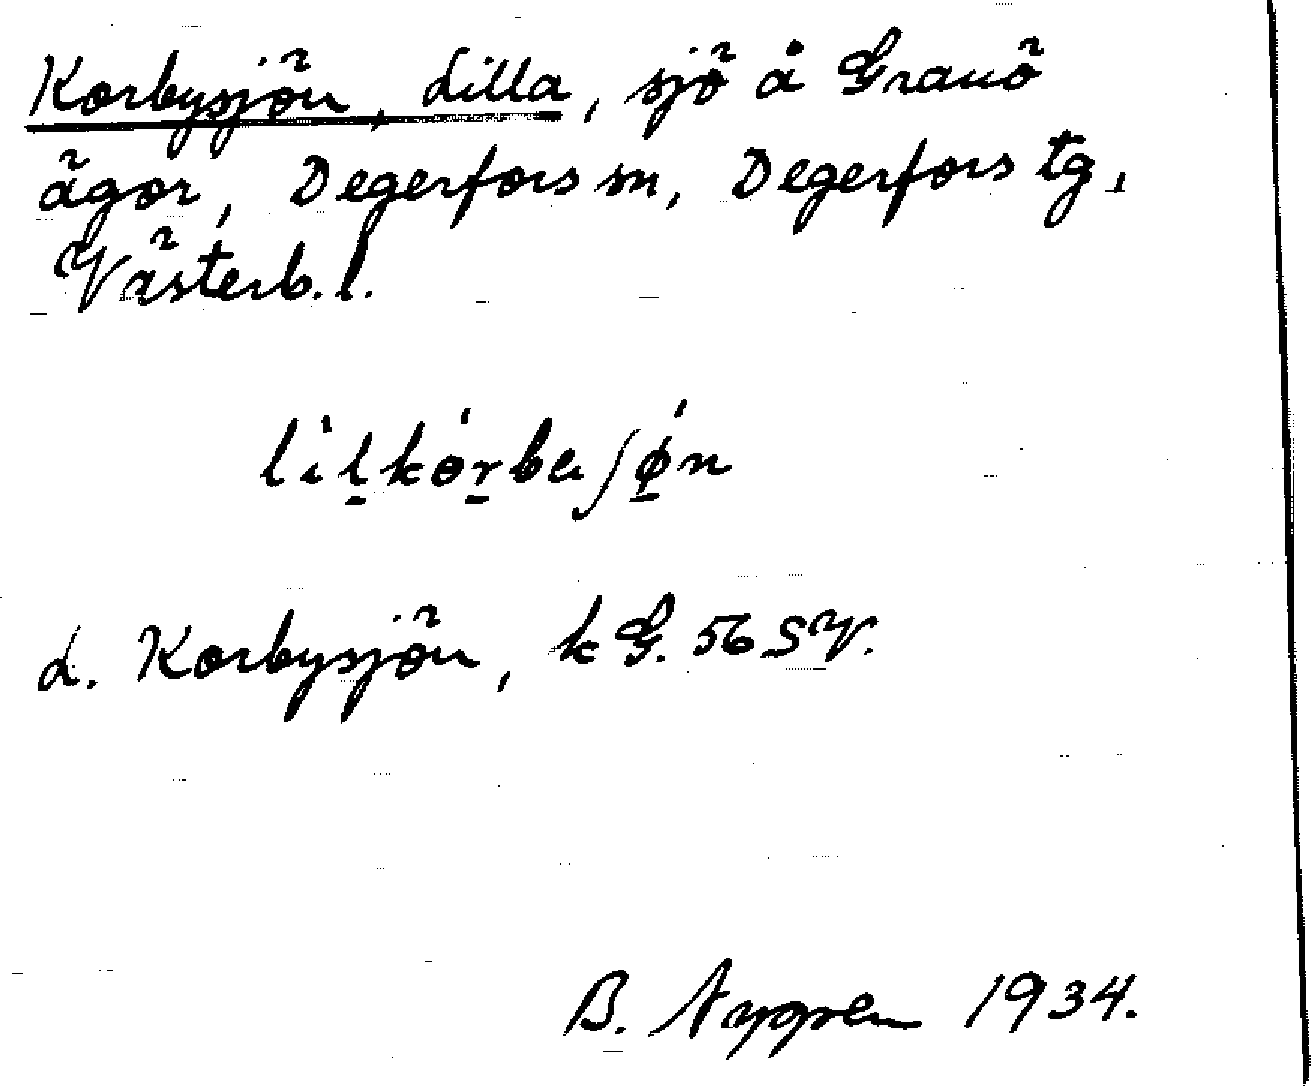 Korbysjön, Lilla, sjö å Granö
ägor, Degerfors sn, Degerfors tg,
Västerb. l.
lìl̲kór̲beʃǿ̲n
L. Korbysjön, kG. 56 SV.
B. Nygren 1934.